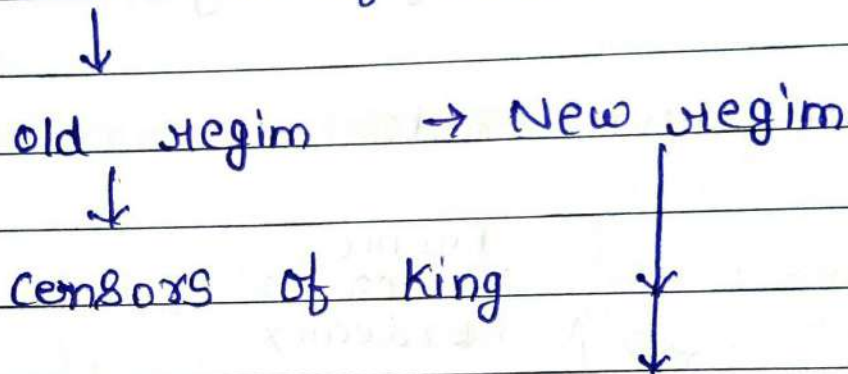 ↓
old regim → New regim
↓ ↓
censors of king
↓